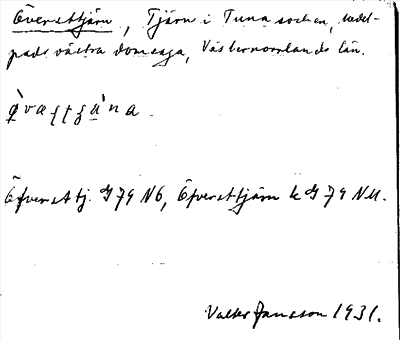 Överattjärn, Tjärn i Tuna socken, Medel-
pads västra domsaga, Västernorrlands län.
Öfverattj. G 79 N6, Öfverattjärn k G 79 NM.
Valter Jansson 1931.